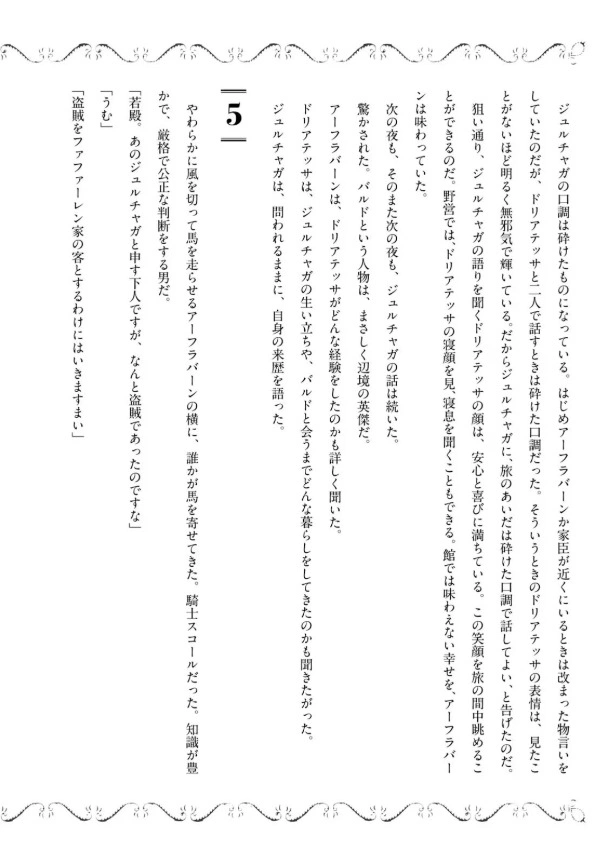 ジュルチャガの口調は砕けたものになっている。はじめアーフラバーンか家臣が近くにいるときは改まった物言いを
していたのだが、ドリアテッサと二人で話すときは砕けた口調だった。そういうときのドリアテッサの表情は、見たこ
とがないほど明るく無邪気で輝いている。だからジュルチャガに、旅のあいだは砕けた口調で話してよい、と告げたのだ。
　狙い通り、ジュルチャガの語りを聞くドリアテッサの顔は、安心と喜びに満ちている。この笑顔を旅の間中眺めるこ
とができるのだ。野営では、ドリアテッサの寝顔を見、寝息を聞くこともできる。館では味わえない幸せを、アーフラバー
ンは味わっていた。
　次の夜も、そのまた次の夜も、ジュルチャガの話は続いた。
　驚かされた。バルドという人物は、まさしく辺境の英傑だ。
　アーフラバーンは、ドリアテッサがどんな経験をしたのかも詳しく聞いた。
　ドリアテッサは、ジュルチャガの生い立ちや、バルドと会うまでどんな暮らしをしてきたのかも聞きたがった。
　ジュルチャガは、問われるままに、自身の来歴を語った。
5
　やわらかに風を切って馬を走らせるアーフラバーンの横に、誰かが馬を寄せてきた。騎士スコールだった。知識が豊
かで、厳格で公正な判断をする男だ。
「若殿。あのジュルチャガと申す下人ですが、なんと盗賊であったのですな」
「うむ」
「盗賊をファファーレン家の客とするわけにはいきますまい」